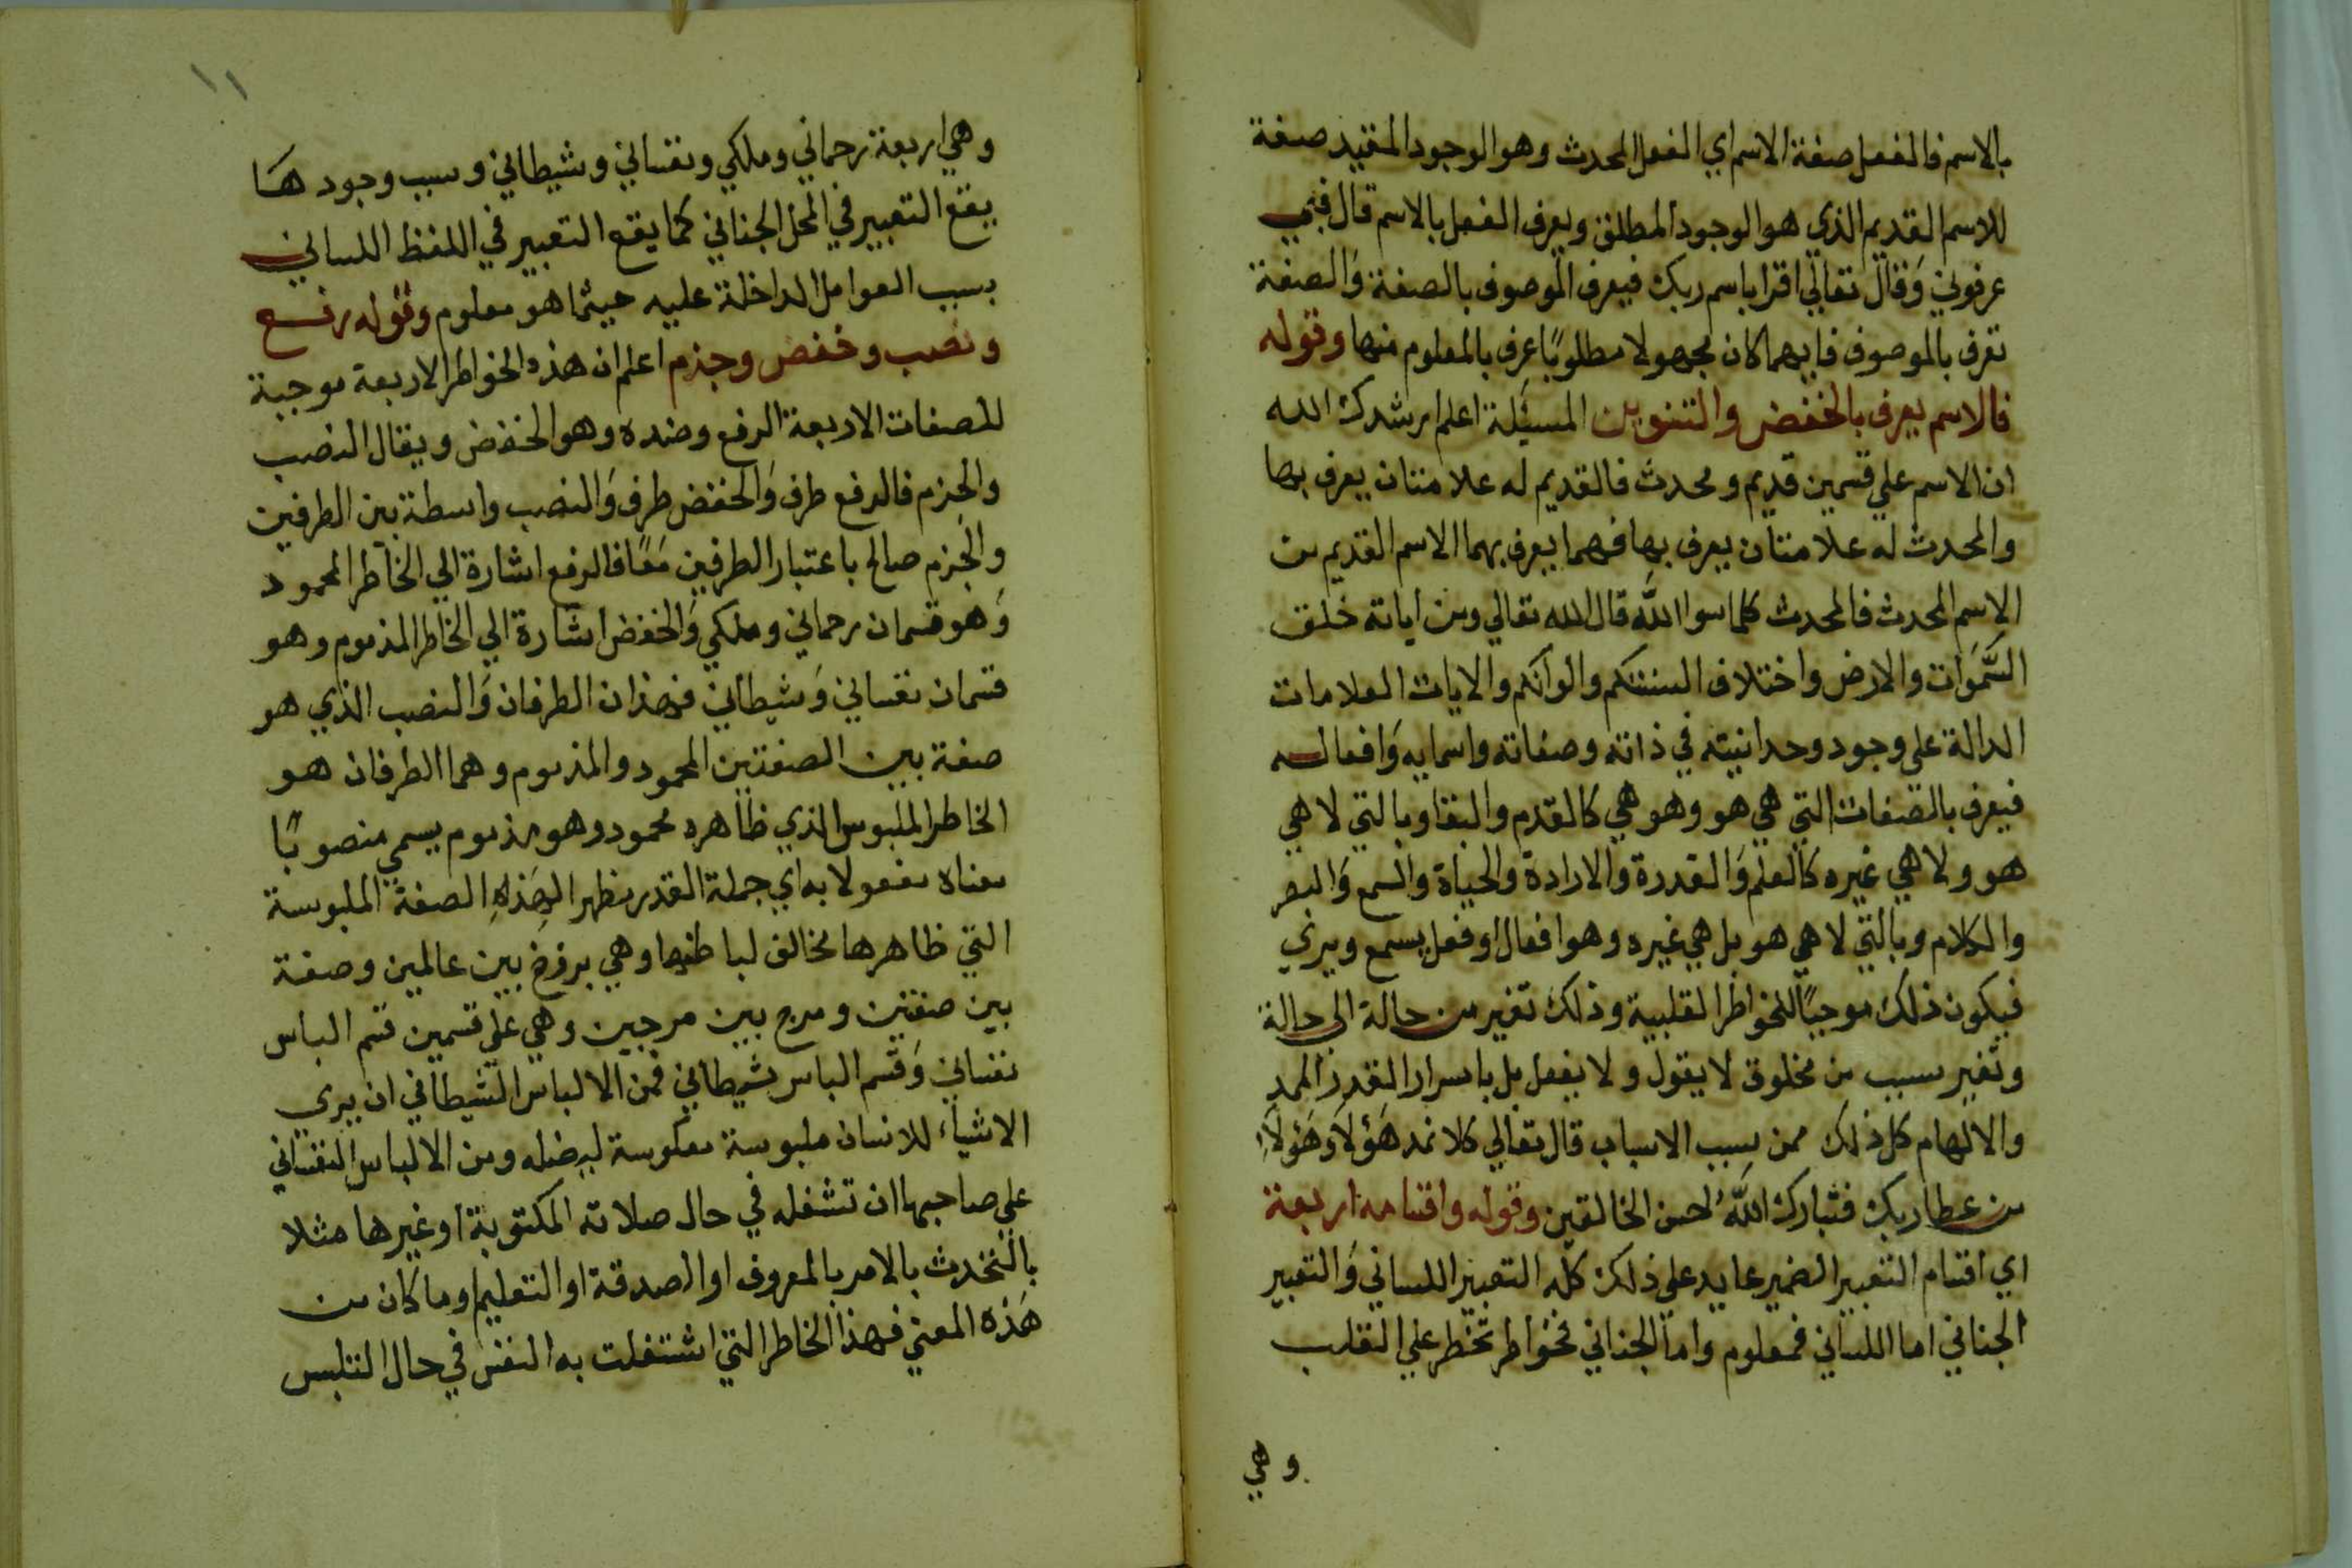 بالاسم فالفعل صفة الاسم اي الفعل المحدث وهو الوجود المقيد صفة
للاسم القديم الذي هو الوجود المطلق ويعرف الفعل بالاسم قال فبي
عرفوني وَقال تعالي اقرا باسم ربك فيعرف الموصوف بالصفة وَالصفة
تعرف بالموصوف فايهما كان مجهولا مطلوبًا عرف بالمعلوم منها وقوله
فالاسم يعرف بالخفض والتنوين المسئلة اعلم ارشدك الله
ان الاسم علي قسمين قديم ومحدث فالقديم له علامتان يعرف بها
والمحدث له علامتان يعرف بها فهما يعرف بهما الاسم القديم من
الاسم المحدث فالمحدث كلما سوا الله قال الله تعالي ومن اياته خلق
السَّمَوَات والارض واختلاف السنتكم والوانكم والايات العلامات
الدالة على وجود وحدانيته في ذاته وصفاته واسمايه وَافعاله
فيعرف بالصفات التي هي هو وهو هي كالقدم والبقا وبالتي لا هي
هو ولا هي غيره كالعلم وَالقدرة والارادة والحياة والسمع وَالبصر
والكلام وبالتي لا هي هو بل هي غيره وهو افعال او فعل يسمع ويري
فيكون ذلك موجبًا للخواطر القلبية وذلك تغير من حالة الى حالة
وتغير بسبب من مخلوق لا يقول ولا يفعل بل باسرار القدر المد
والالهام كل ذلك ممن سبب الاسباب قال تعالي كلا نمد هَؤلاَ وَهَؤلاَءِ
من عطا ربك فتبارك اللهُ احسن الخالقين وقوله واقسامه اربعة
اي اقسام التغيير الضمير عايد علي ذلك كله التغيير اللساني وَالتغيير
الجناني اما اللساني فمعلوم واما الجناني فخواطر تخطر علي القلب
وهي
١١
وهي اربعة رحماني وملكي ونفساني وشيطاني وبسبب وجودهَا
يقع التغيير في المحل الجناني كما يقع التغيير في اللفظ اللساني
بسبب العوامل الداخلة عليه حيثما هو معلوم وقوله رفع
ونصب وخفض وجزم اعلم ان هذه الخواطر الاربعة موجبة
للصفات الاربعة الرفع وضده وهو الخفض ويقال النصب
والجزم فالرفع طرف وَالخفض طرف وَالنصب واسطة بين الطرفين
والجزم صالح باعتبار الطرفين مَعًا فالرفع اشارة الي الخاطر المحمود
وَهو قسمان رحماني وملكي وَالخفض اشارة الي الخاطر المذموم وهو
قسمان نفساني وَشيطاني فهذان الطرفان وَالنصب الذي هو
صفة بين الصفتين المحمود والمذموم وهما الطرفان هو
الخاطر الملبوس الذي ظاهره محمود وهو مذموم يسمي منصوبًا
معناه مفعولا به اي جملة القدر مظهرا لهَذِهِ الصفة الملبوسة
التي ظاهرها مخالف لباطنها وهي برزخ بين عالمين وصفة
بين صفتين ومرج بين مرجين وهي علي قسمين قسم الباس
نفساني وَقسم الباس شيطاني فمن الالباس الشيطاني ان يري
الاشياء للانسان ملبوسة معكوسة ليضله ومن الالباس النفساني
علي صاحبها ان تشغله في حال صلاته المكتوبة او غيرها مثلا
بالتحدث بالامر بالمعروف او الصدقة او التعليم او ما كان من
هَذه المعني فهذا الخاطر التي اشتغلت به النفس في حال التلبس